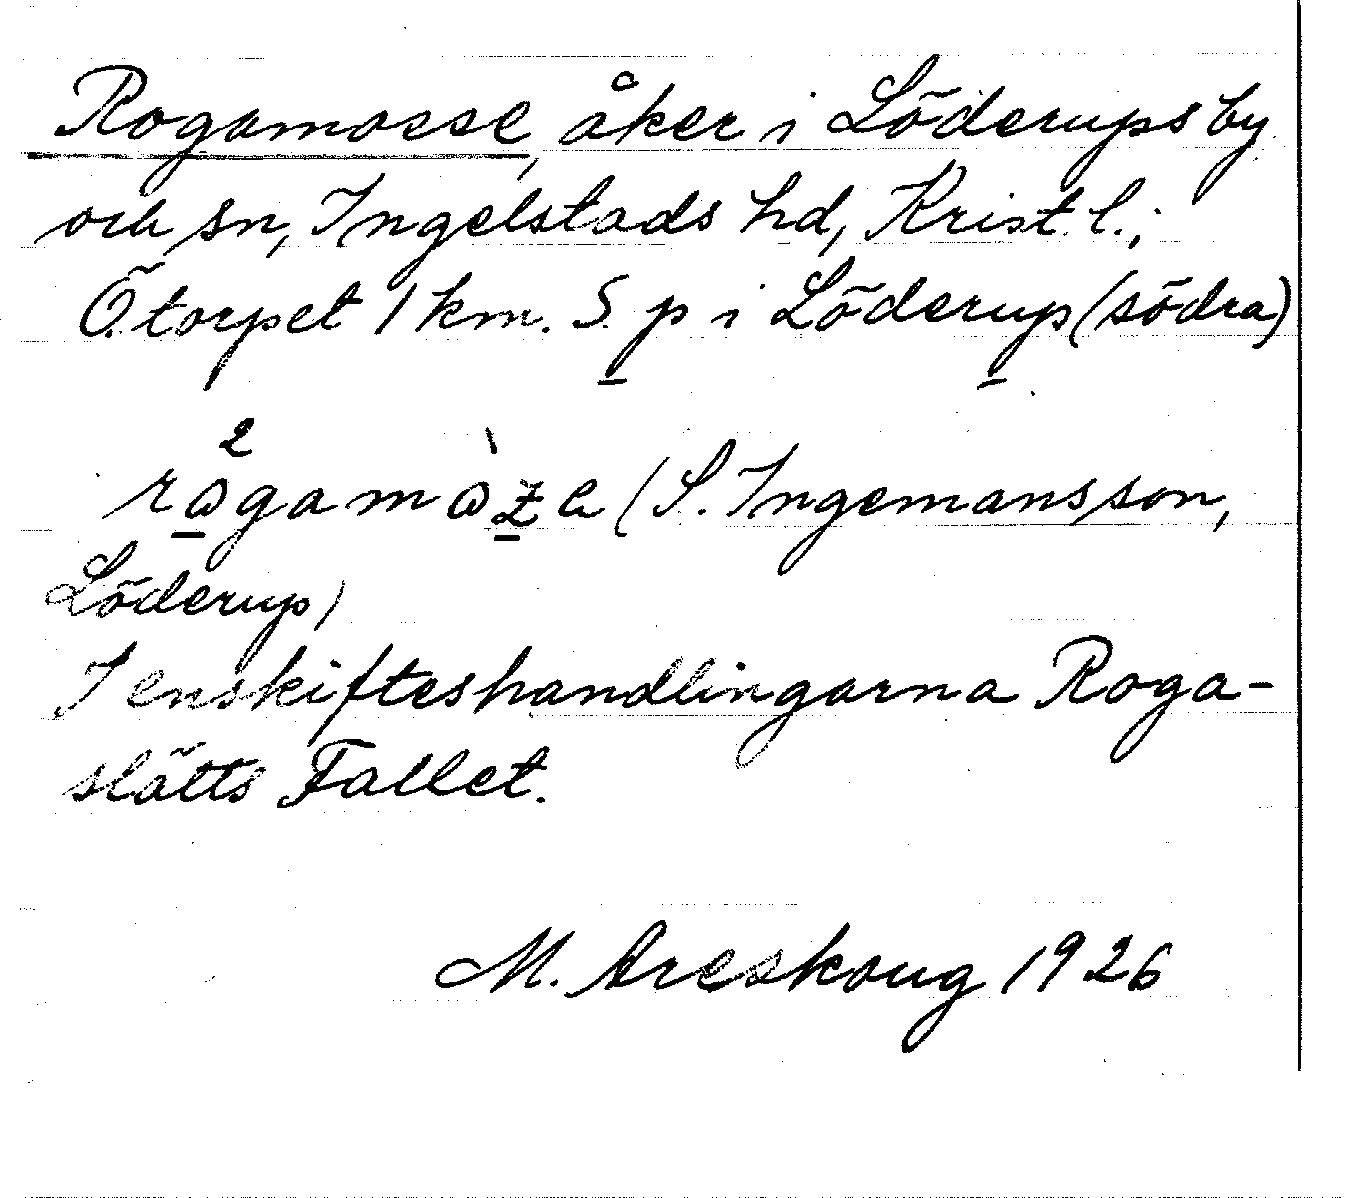 Rogamosse, åker i Löderups by
och sn, Ingelstads hd, Krist. l.;
Ö. torpet 1 km. S. p i Löderup (södra)
(S. Ingemansson,
Löderup)
I enskifteshandlingarna Roga-
slätts Fallet.
M. Areskoug 1926